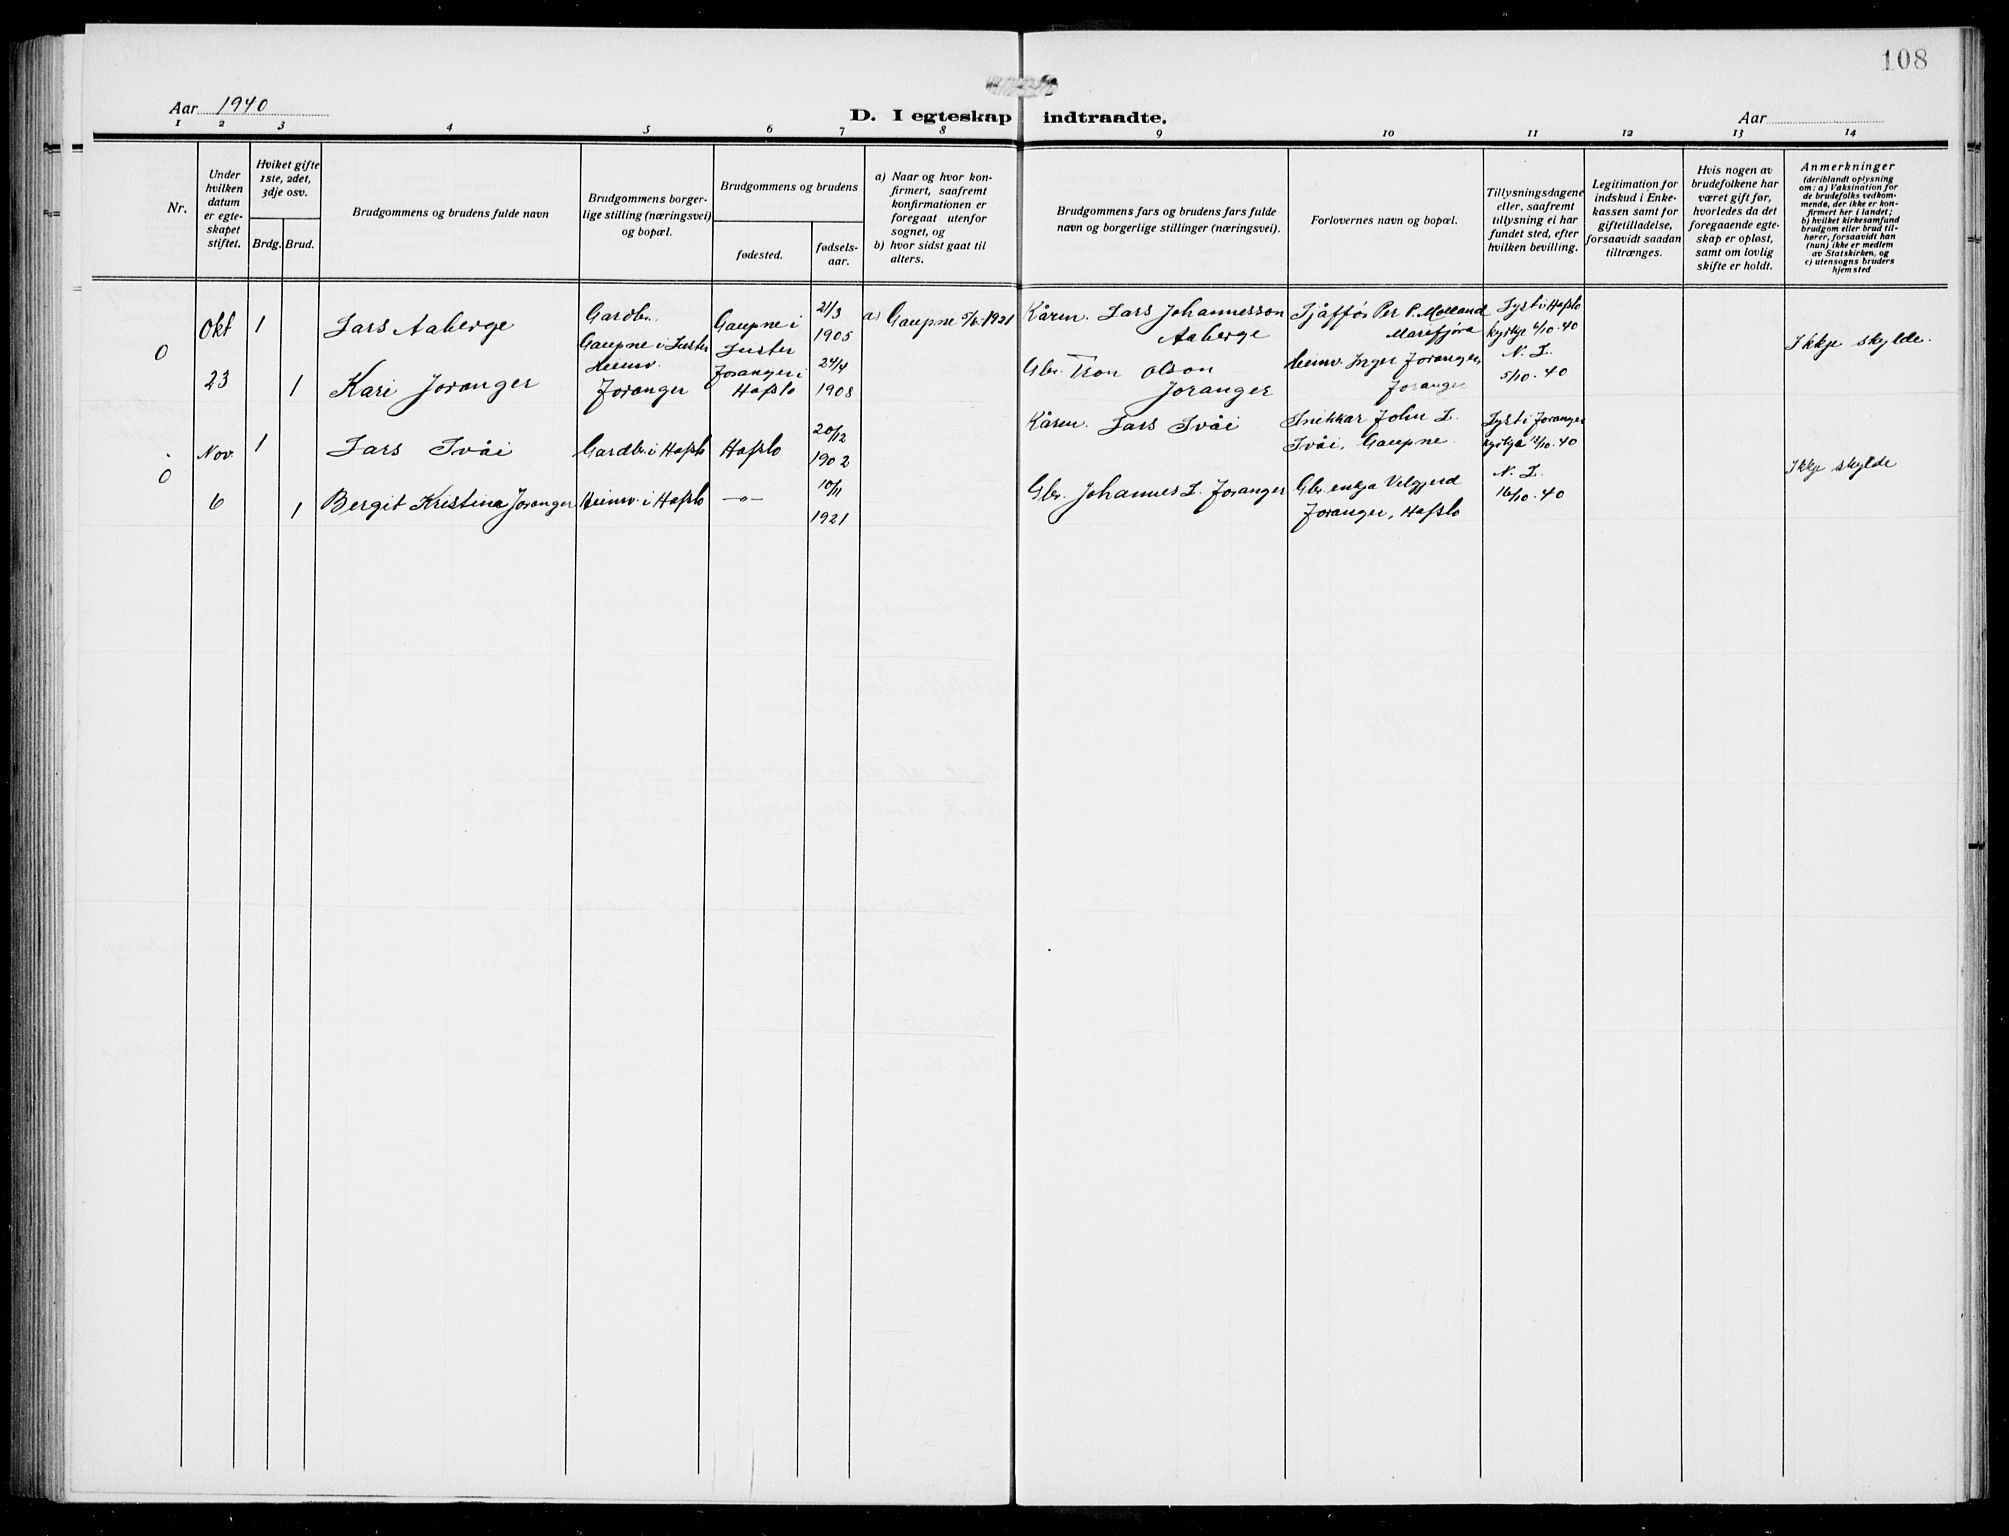 108
Aar 1940
D. I egteskap indtraadte.
Aar
1 2 3 4 5 6 7 8 9 10 11 12 13 14
Nr.
Under
hvilken
datum
er egte-
skapet
stiftet.
Hviket gifte
1ste, 2det,
3dje osv.
Brdg. Brud.
Brudgommens og brudens fulde navn
Brudgommens borger-
lige stilling (næringsvei)
og bopæl.
Brudgommens og brudens
fødested.
fødsels-
aar.
a) Naar og hvor kon-
firmert, saafremt
konfirmationen er
foregaat utenfor
sognet, og
b) hvor sidst gaat til
alters.
Brudgommens fars og brudens fars fulde
navn og borgerlige stillinger (næringsvei).
Forlovernes navn og bopæl.
Tillysningsdagene
eller, saafremt
tillysning ei har
fundet sted, efter
hvilken bevilling.
Legitimation for
indskud i Enke-
kassen samt for
giftetilladelse,
forsaavidt saadan
tiltrænges.
Hvis nogen av
brudefolkene har
været gift før,
hvorledes da det
foregaaende egte-
skap er opløst,
samt om lovlig
skifte er holdt.
Anmerkninger
(deriblandt oplysning
om: a) Vaksination for
de brudefolks vedkom-
mende, der ikke er kon-
firmert her i landet;
b) hvilket kirkesamfund
brudgom eller brud til-
hører, forsaavidt han
(hun) ikke er medlem
av Statskirken, og
c) utensogns bruders
hjemsted
0
Okt
23
1
Lars Aaberge
Gardbr.
Gaupne i Luster
Gaupne i
Luster
21/3
1905
a) Gaupne 5/6-1921
Kårm. Lars Johannesson
Aaberge
Sjåffør Per P. Molland
Marifjøra
Lyst i Hafslo
kyrkje 6/10-40
Ikkje skylde.
1
Kari Joranger
Heimv.
Joranger
Joranger i
Hafslo
24/4
1908
Gbr. Tron Olson
Joranger
Heimv. Inger Joranger,
Joranger
N. L.
5/10-40
0
Nov.
6
1
Lars Svåi
Gardbr. i Hafslo
Hafslo
20/12
1902
Kårm. Lars Svåi
Snikkar John L.
Svåi, Gaupne.
Lyst i Joranger
kyrkja 13/10-40
Ikkje skylde
1
Bergit Kristina Joranger
Heimv. i Hafslo
—"—
10/11
1921
Gbr. Johannes L. Joranger
Gbr. enkja Velgjerd
Joranger, Hafslo
N. L.
16/10-40